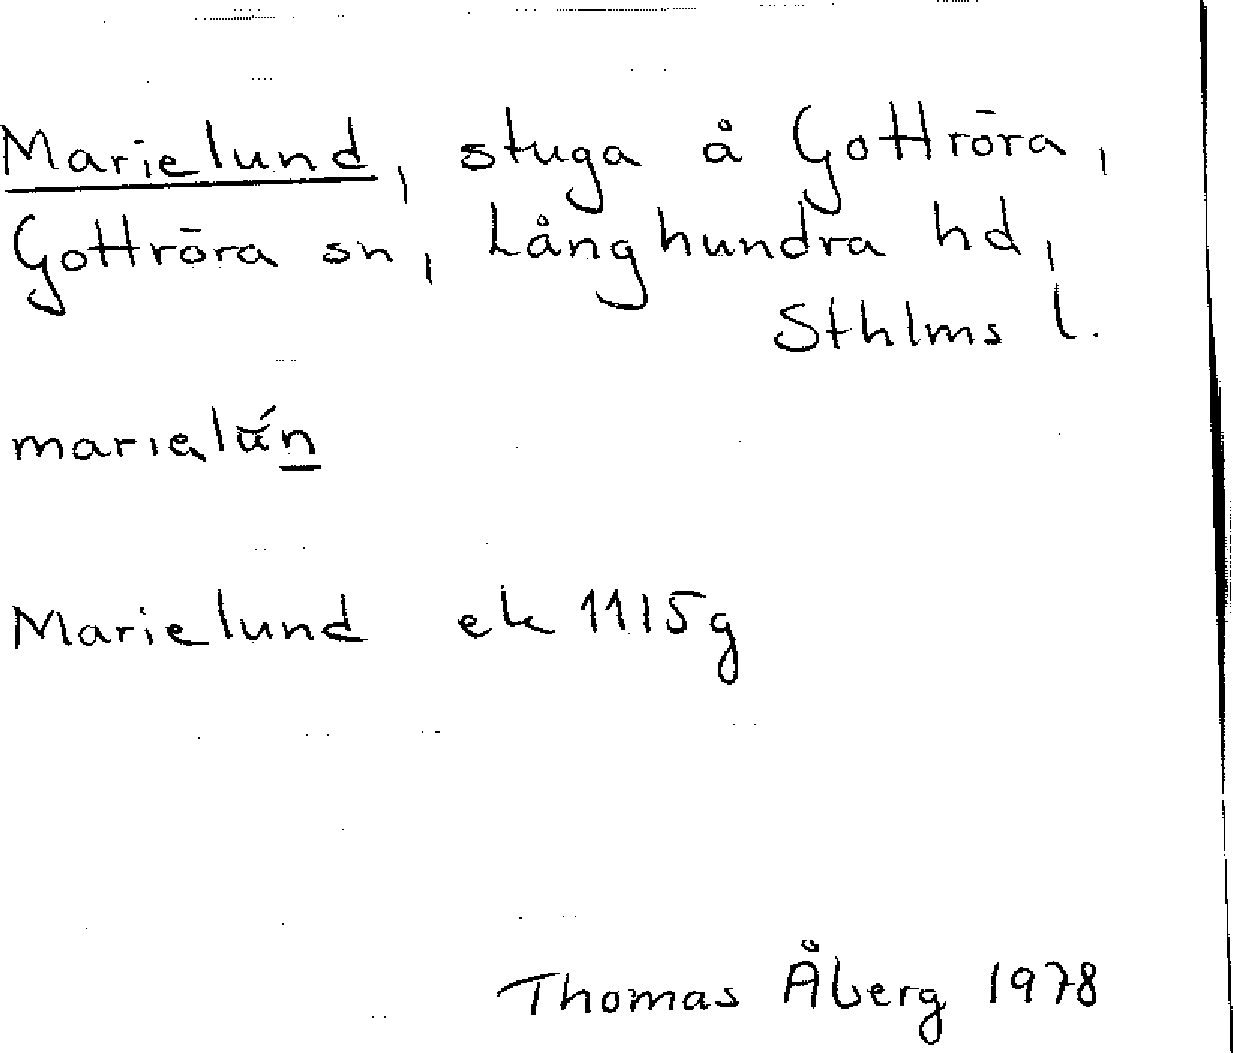 Marielund, stuga å Gottröra,
Gottröra sn, Långhundra hd,
Sthlms l.
marielŭ́n
Marielund ek 11I5g
Thomas Åberg 1978